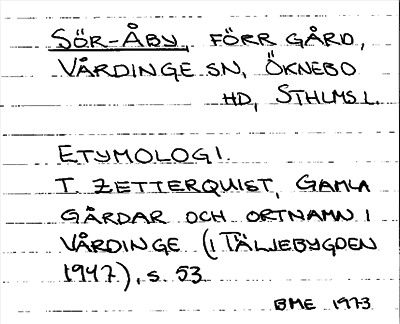 SÖR-ÅBY, FÖRR GÅRD,
VÅRDINGE SN, ÖKNEBO
HD, STHLMS L.
ETYMOLOGI.
T. ZETTERQUIST, GAMLA
GÅRDAR OCH ORTNAMN I
VÅRDINGE (I TÄLJEBYGDEN
1947), S. 53
BME 1973